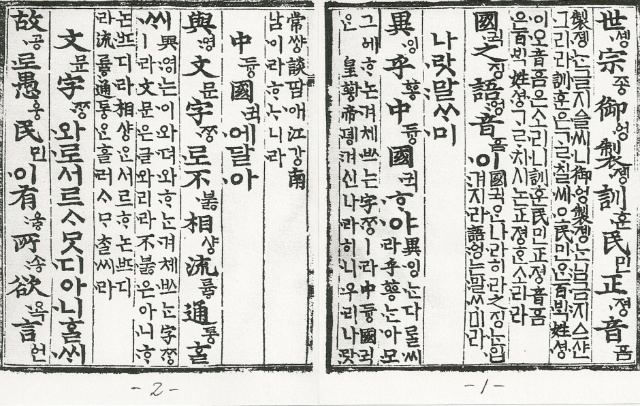 世솅宗종御엉製졩訓훈民민正졍音ᅙᅳᆷ
製졩는글지ᅀᅳᆯ씨니御엉製졩는님금지ᅀᅳ샨
그리라訓훈은ᄀᆞᄅᆞ칠씨오民민ᄋᆞᆫ百ᄇᆡᆨ姓셩
이오音ᅙᅳᆷ은소리니訓훈民민正졍音ᅙᅳᆷ
은百ᄇᆡᆨ姓셩ᄀᆞᄅᆞ치시논正졍ᄒᆞᆫ소리라
國귁之징語ᅌᅥᆼ音ᅙᅳᆷ이
國귁ᄋᆞᆫ나라히라之징는입
겨지라語ᅌᅥᆼ는말ᄊᆞ미라
나랏말ᄊᆞ미
異잉乎ᅘᅩᆼ中듀ᇰ國귁ᄒᆞ야
異잉는다ᄅᆞᆯ씨
라乎ᅘᅩᆼ는아모
그ᅌᅦᄒᆞ논겨체ᄡᅳ는字ᄍᆞᆼㅣ라中듀ᇰ國귁
ᄋᆞᆫ皇황帝뎽겨신나라히니우리나랏
-1-
常쌰ᇰ談땀애江가ᇰ南
남이라ᄒᆞᄂᆞ니라
中듀ᇰ國귁에달아
與영文문字ᄍᆞᆼ로不부ᇙ相샤ᇰ流류ᇢ通토ᇰᄒᆞᆯ
씨
與영는이와뎌와ᄒᆞ논겨체ᄡᅳ는字ᄍᆞᆼ
ㅣ라文문은글와리라不부ᇙ은아니ᄒᆞ
논ᄠᅳ디라相샤ᇰᄋᆞᆫ서르ᄒᆞ논ᄠᅳ디
라流류ᇢ通토ᇰᄋᆞᆫ흘러ᄉᆞᄆᆞᄎᆞᆯ씨라
文문字ᄍᆞᆼ와로서르ᄉᆞᄆᆞᆺ디아니ᄒᆞᆯᄊᆡ
故공로愚ᅌᅮᆼ民민이有우ᇢ所송欲욕言언
-2-